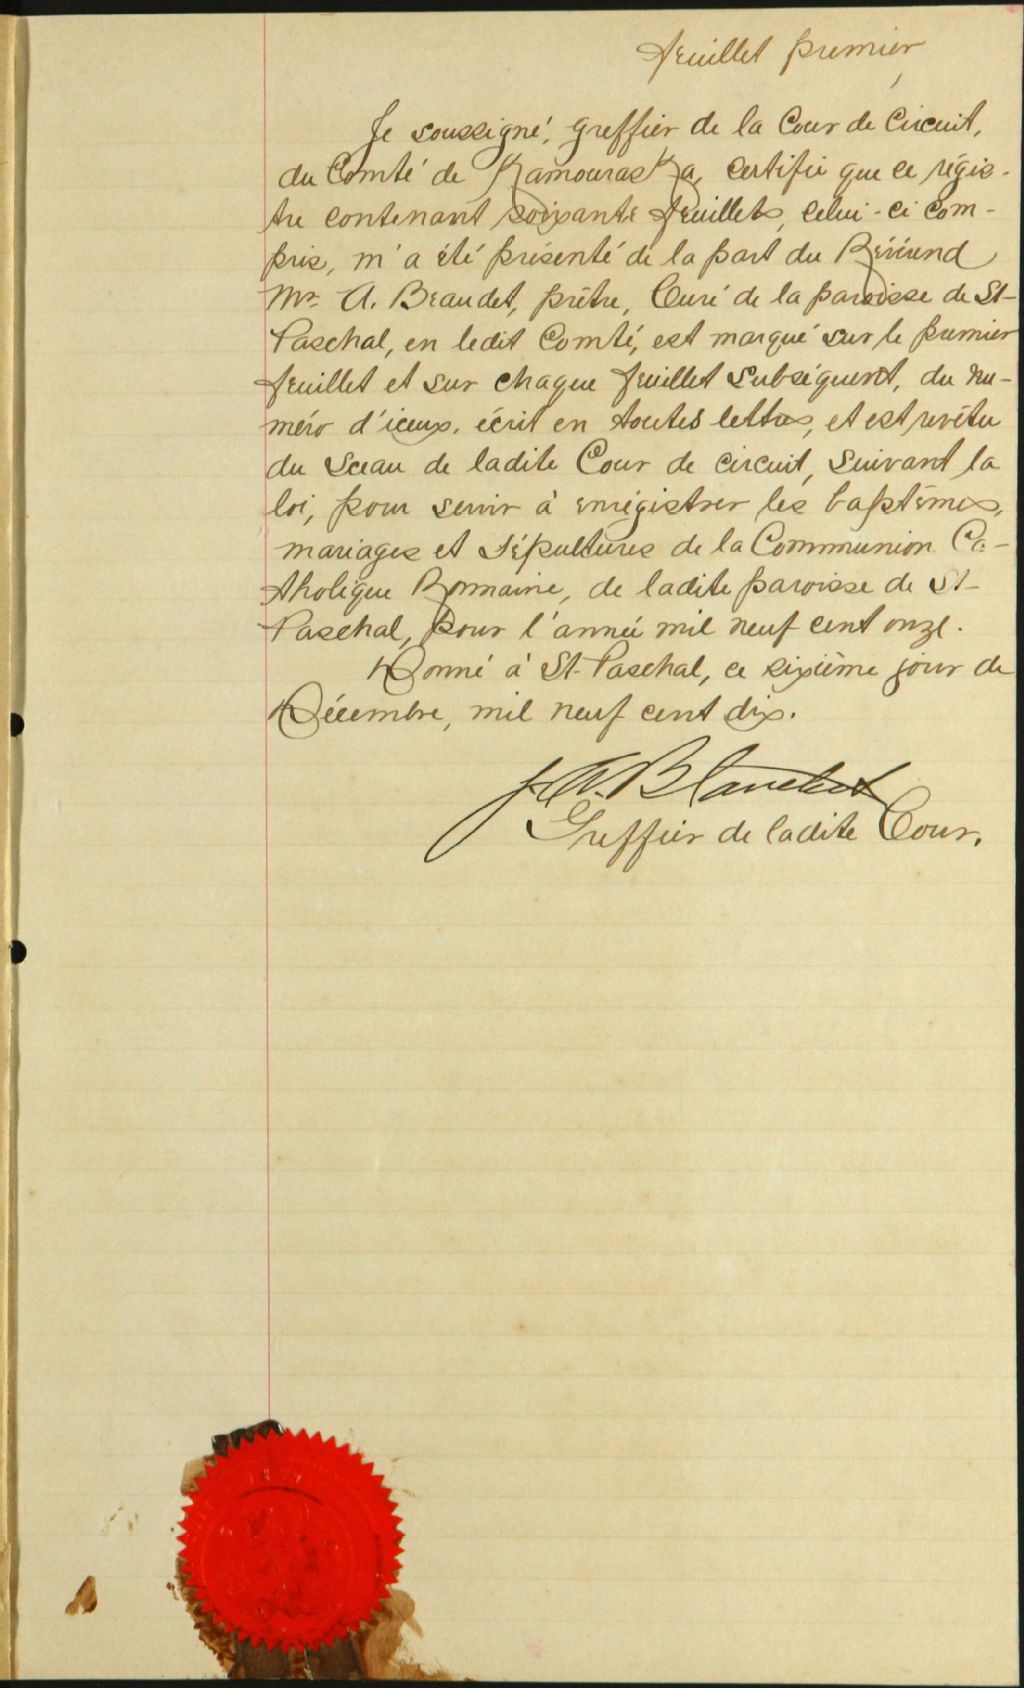 feuillet premier
Je soussigné, greffier de la Cour de Circuit,
du Comté de Kamouraska, certifie que ce régis-
tre contenant soixante feuillets, celui-ci com-
pris, m'a été présenté de la part du Révérend
Mr. A. Beaudet, prêtre, Curé de la paroisse de St-
Paschal, en ledit Comté, est marqué sur le premier
feuillet et sur chaque feuillet subséquent, du nu-
méro d'iceux, écrit en toutes lettres, et est revêtu
du Sceau de ladite Cour de circuit, suivant la
loi, pour servir à enrégistrer les baptêmes,
mariages et sépultures de la Communion Ca-
tholique Romaine, de ladite paroisse de St-
Paschal, pour l'année mil neuf cent onze.
Donné à St-Paschal, ce sixième jour de
Décembre, mil neuf cent dix.
J. A. Blanchet
Greffier de ladite Cour.